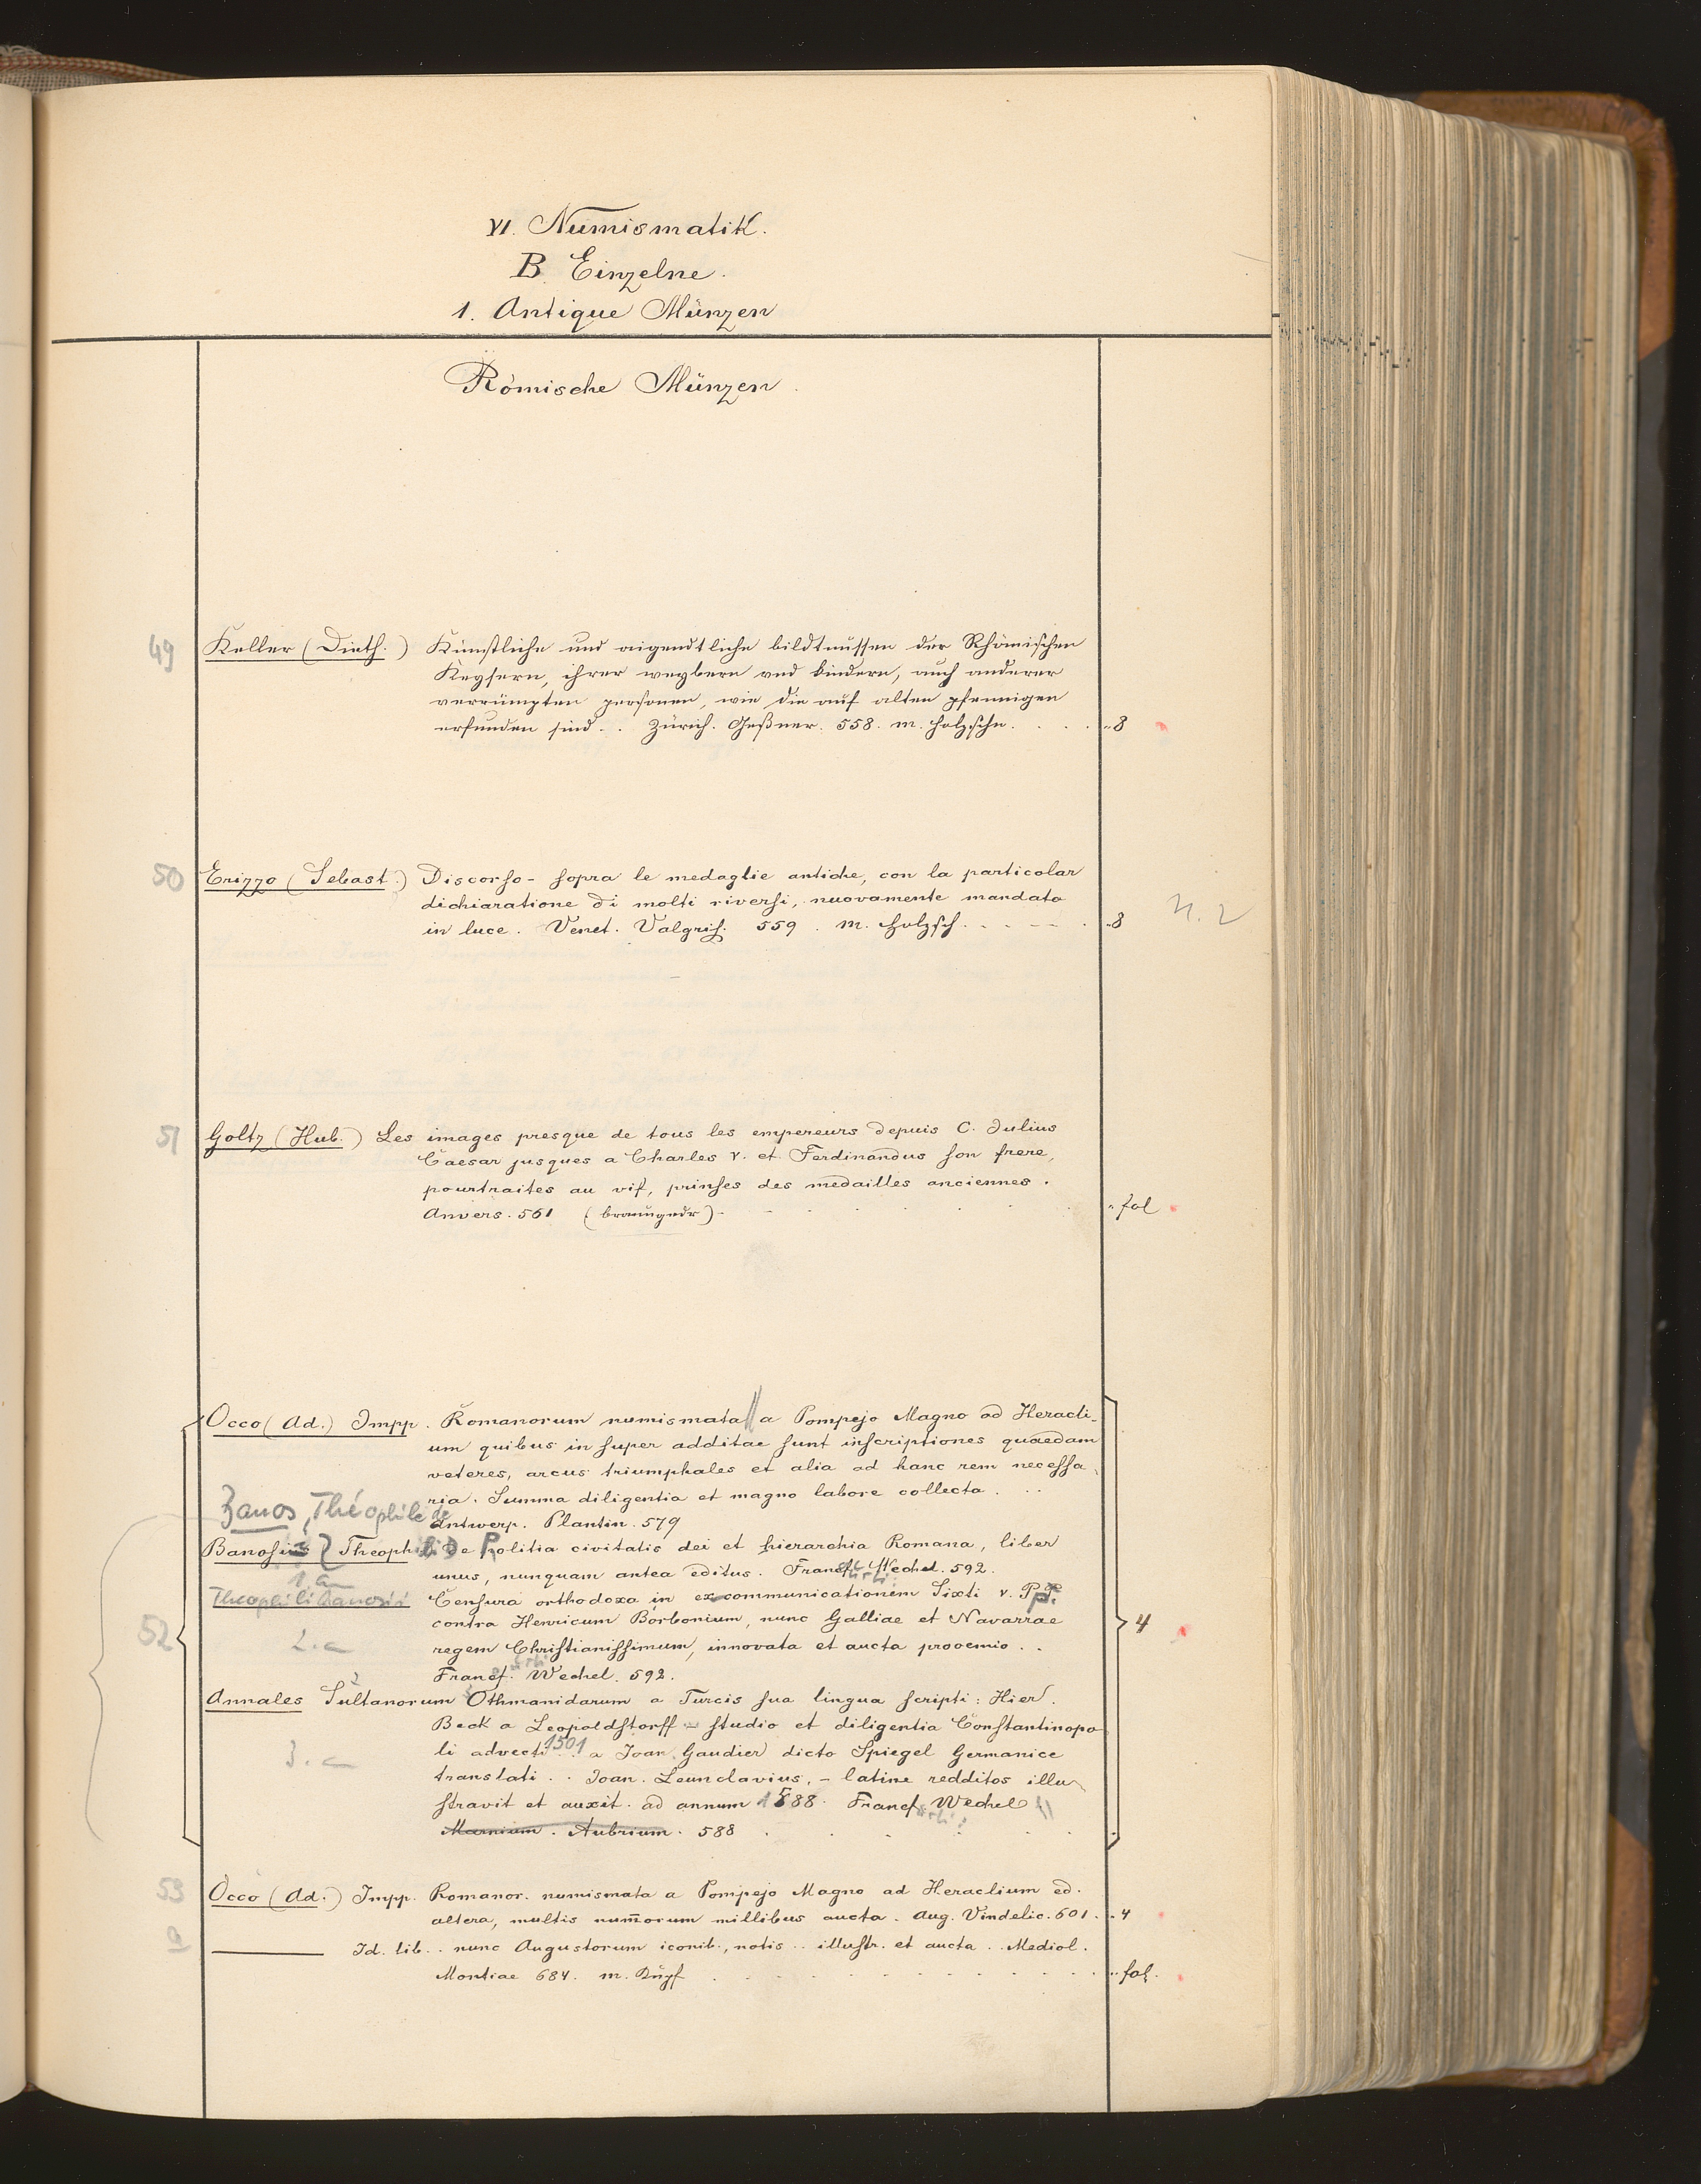 VI. Numismatik.
B Einzelne.
1. Antique Münzen
Römische Münzen.
49 Keller (Dieth.) Künstliche und aigendtliche bildtnussen der Rhömischen
Keysern, ihrer weybern und kindern, auch anderer
verrümpten personen, wie die auf alten pfennigen
erfunden sind . . Zürich. Geßner. 558. m. Holzschn. . . . „8
50 Erizzo (Sebast.) Discorso - sopra le medaglie antiche, con la particolar
dichiaratione di molti riversi, nuovamente mandato
in luce. Venet. Valgris. 559. m. Holzsch. . . . . „8
51 Goltz (Hub.) Les images presque de tous les empereurs depuis C. Julius
Caesar jusques a Charles V. et Ferdinandus son frere,
pourtraites au vif, prinses des medailles anciennes.
Anvers. 561 (braungedr) . . . . „ fol
Occo (Ad.) Impp. Romanorum numismata || a Pompejo Magno ad Heracli-
um quibus in super additae sunt inscriptiones quaedam
veteres, arcus triumphales et alia ad hanc rem necessa-
ria. Summa diligentia et magno labore collecta . . .
Banos, Théophile de
Antwerp. Plantin. 579
Banosius Theophili De Politia civitatis dei et hierarchia Romana, liber
unus, nunquam antea editus. Francf. Wechel. 592.
1. a
Theophili Banosii Censura orthodoxa in excommunicationem Sixti V. P. P.
52 contra Henricum Borbonium, nunc Galliae et Navarrae 4
2. a regem Christianissimum, innovata et aucta prooemio . .
Francf. Wechel. 592.
Annales Sultanorum Othmanidarum a Turcis sua lingua scripti: Hier.
Beck a Leopoldstorff - studio et diligentia Constantinopo
3. a li advecti 1501 a Joan. Gaudier dicto Spiegel Germanice
translati . . Joan. Leunclavius, - latine redditos illu
stravit et auxit. ad annum 1588. Francf. Wechel
Marnium. Aubrium. 588 . . . . .
53 Occo (Ad.) Impp. Romanor. numismata a Pompejo Magno ad Heraclium ed.
altera, multis num̄orum millibus aucta. Aug. Vindelic. 601. „ 4
a ——— Id. lib. . nunc Augustorum iconib., notis . . illustr. et aucta . . Mediol.
Montiae 684. m. Kupf . . . . . . „ fol.